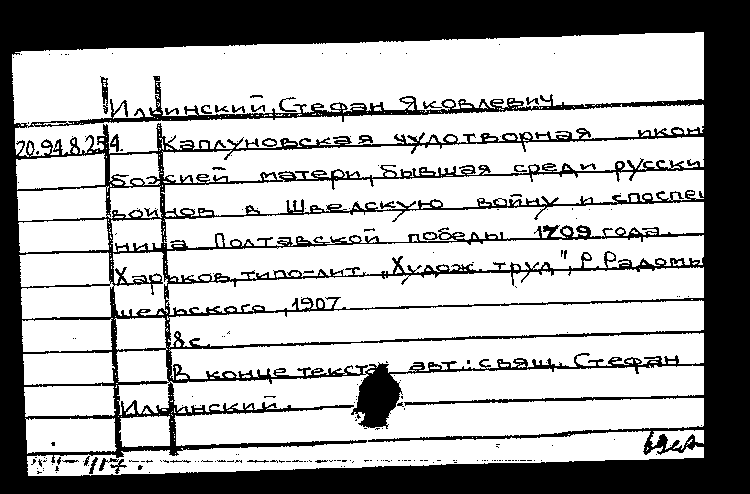 Ильинский, Стефан Яковлевич.
20.94.8.254. Каплуновская чудотворная икон
божией матери, бывшая среди русски
воинов в Шведскую войну и споспеш
ница Полтавской победы 1709 года.
Харьков, типо-лит. „Худож. труд", Р. Радомы
шельского, 1907.
8 с.
В конце текста авт.: свящ. Стефан
Ильинский.